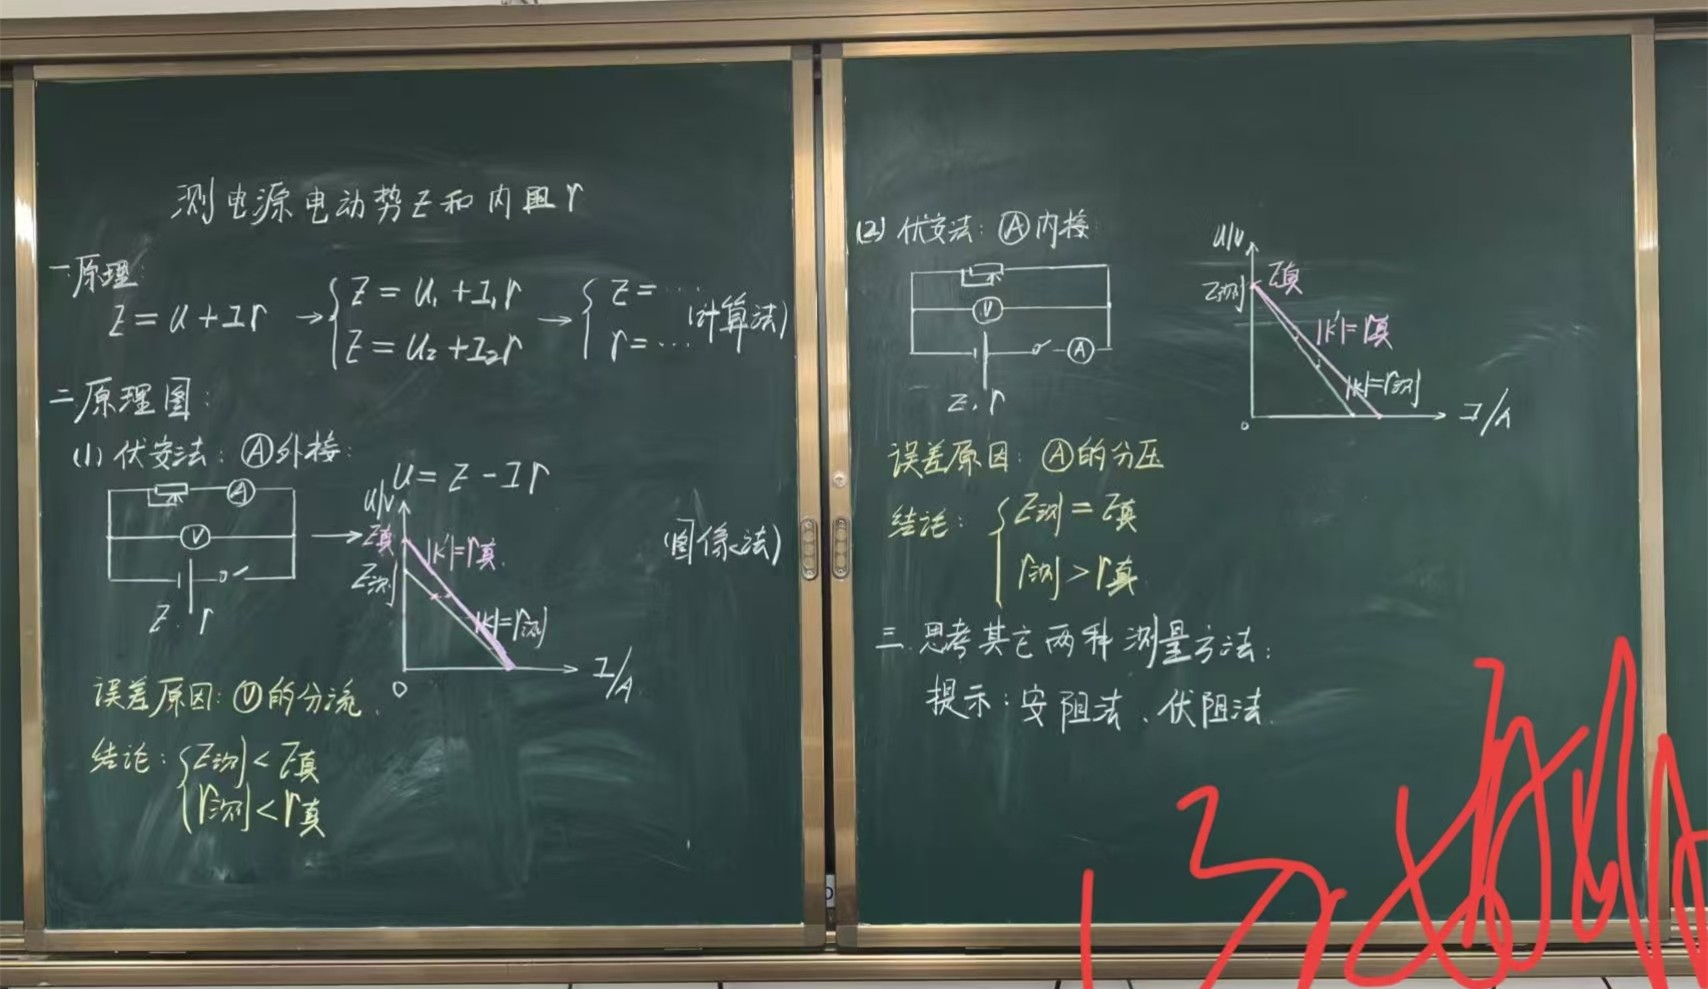 测电源电动势E和内阻r
一原理:
E=U+Ir → { E=U₁+I₁r → { E=… (计算法)
E=U₂+I₂r r=…
二原理图:
(1) 伏安法: Ⓐ外接:
A
V
E. r
U=E-Ir
U/V
E真
E测
|k'|=r真
|k|=r测
(图像法)
O
I/A
误差原因: Ⓥ的分流.
结论: { E测<E真
r测<r真
(2) 伏安法: Ⓐ内接:
V
A
E. r
U/V
E测 E真
|k'|=r真
|k|=r测
o
I/A
误差原因: Ⓐ的分压
结论: { E测=E真
r测>r真
三.思考其它两种测量方法:
提示: 安阻法、伏阻法.